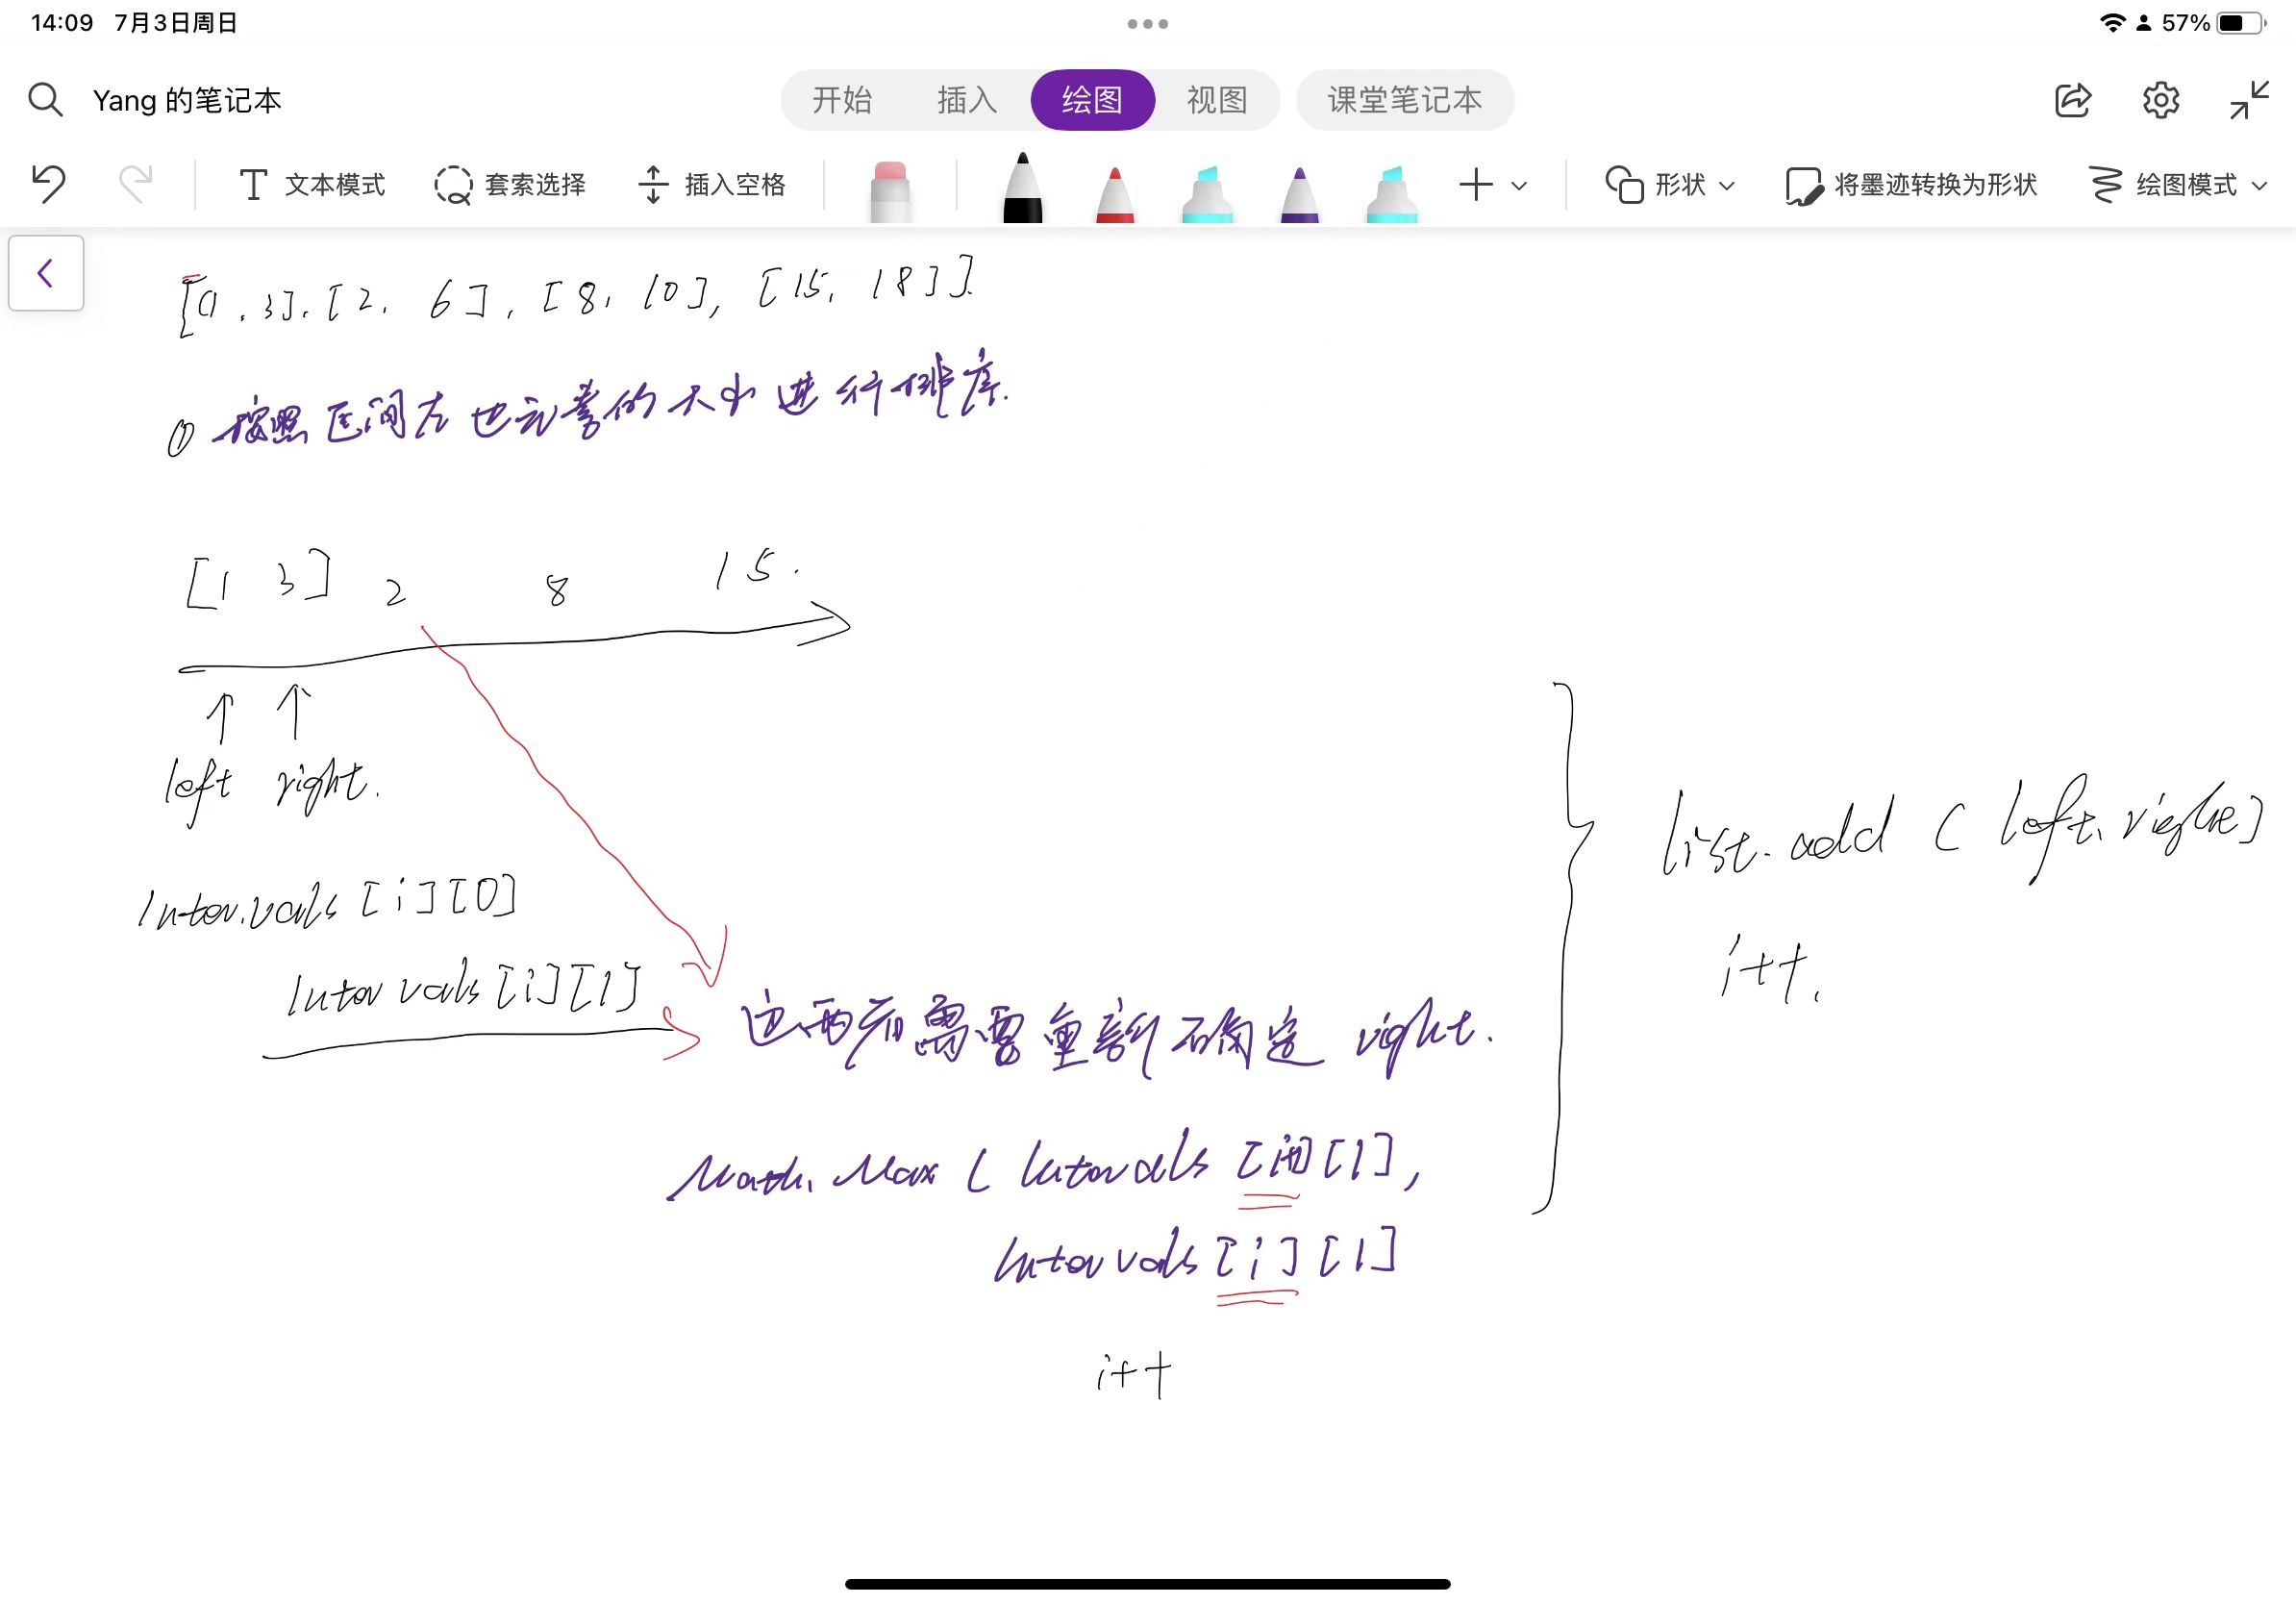 14:09 7月3日周日 57%
Yang 的笔记本 开始 插入 绘图 视图 课堂笔记本
文本模式 套索选择 插入空格 形状 将墨迹转换为形状 绘图模式
[[1,3],[2,6],[8,10],[15,18]].
① 按照区间左边元素的大小进行排序.
[1 3] 2 8 15.
left right.
Intervals[i][0]
Intervals[i][1]
这两者需要重新确定 right.
Math.Max(Intervals[i+1][1],
Intervals[i][1]
i++
list.add(left, right)
i++.